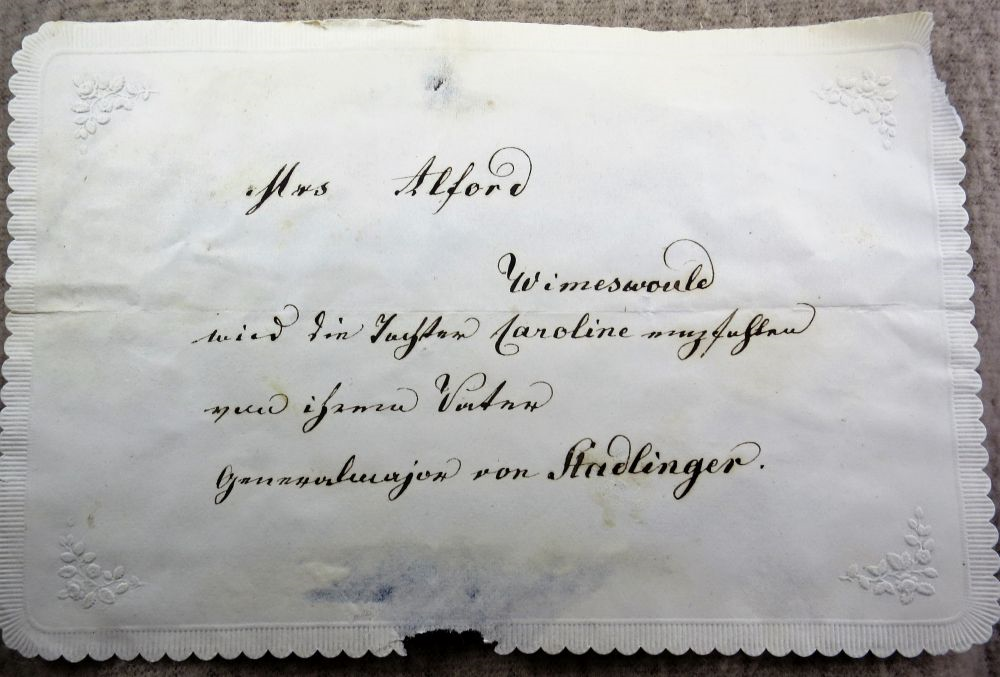 Mrs Alford
Wimeswould
wird die Tochter Caroline empfohlen
von ihrem Vater
Generalmajor von Stadlinger.